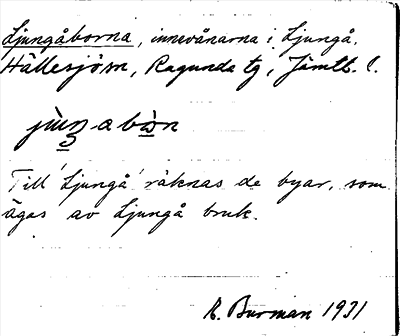 Ljungåborna, innevånarna i Ljungå,
Hällesjö sn, Ragunda tg, Jämtl. l.
Till Ljungå räknas de byar, som
ägas av Ljungå bruk.
R. Burman 1931